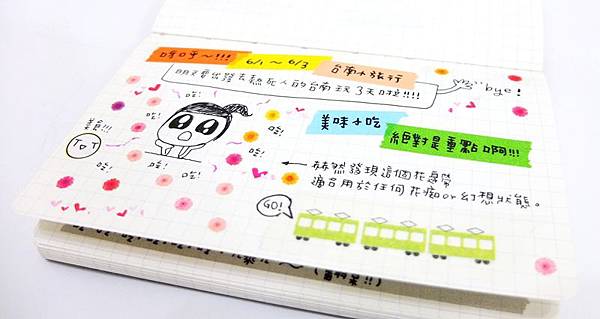 呀呼～!!! 6/1～6/3 台南小旅行
明天要出發去熱死人的台南玩3天啦!!!! bye!
美味小吃
絕對是重點啊!!!
哇! 哇!
哇! 哇!
ToT
哇! 哇! 哇!
← 赫然發現這個花邊帶
適合用於任何花痴or幻想狀態。
GO!